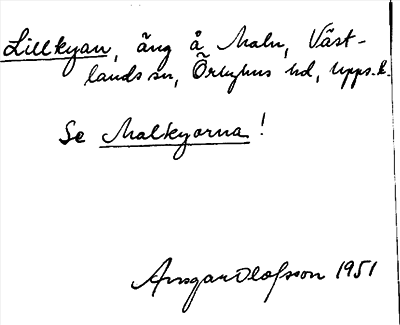 Lillkyan, äng å Maln, Väst-
lands sn, Örbyhus hd, Upps. l.
Se Malkyorna!
Ansgar Olofsson 1951